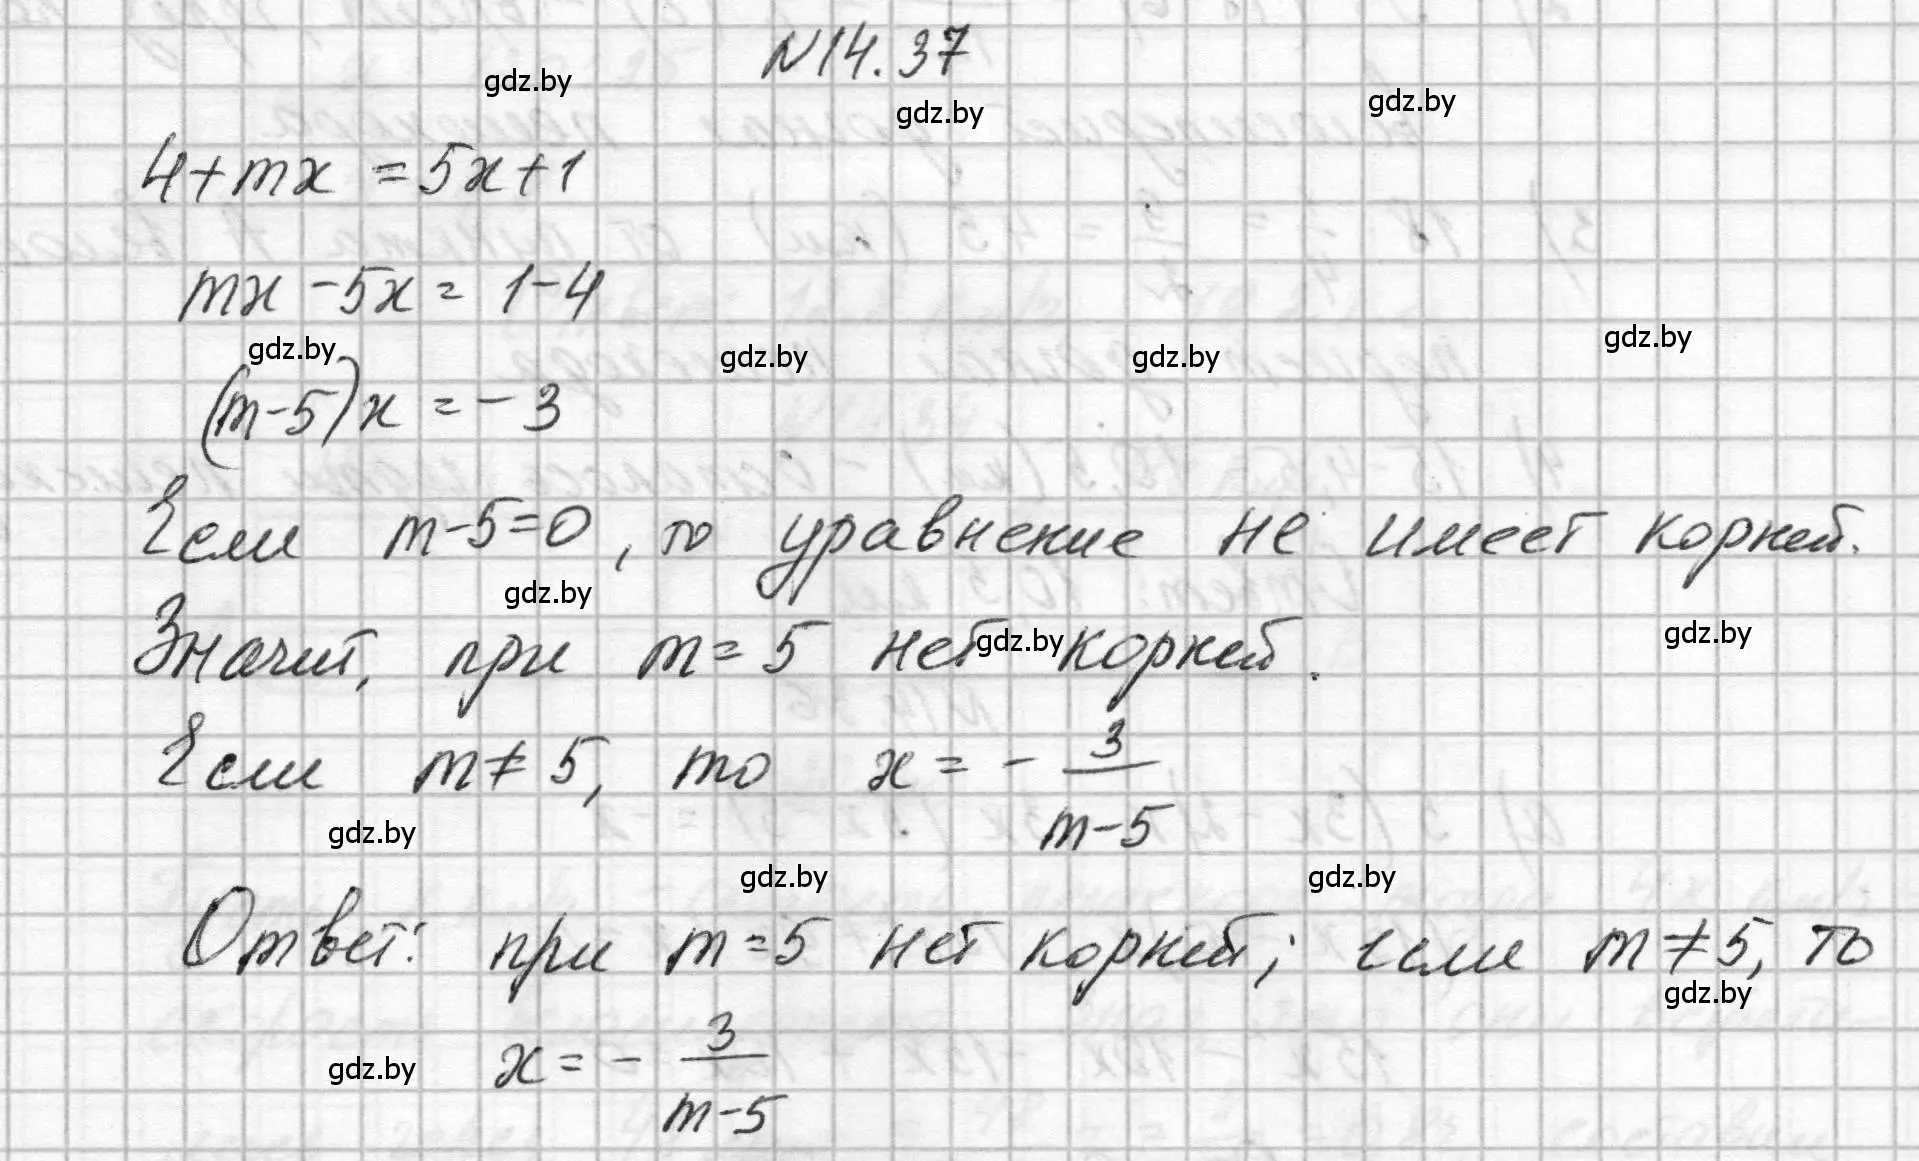 N14.37
gdz.by
gdz.by
gdz.by
4+mx = 5x+1
mx - 5x = 1-4
gdz.by
gdz.by
gdz.by
gdz.by
(m-5)x = -3
Если m-5=0, то уравнение не имеет корней.
gdz.by
Значит, при m=5 нет корней.
gdz.by
gdz.by
Если m≠5, то x = - 3/(m-5)
gdz.by
gdz.by
gdz.by
Ответ: при m=5 нет корней; если m≠5, то
gdz.by
x = - 3/(m-5)
gdz.by